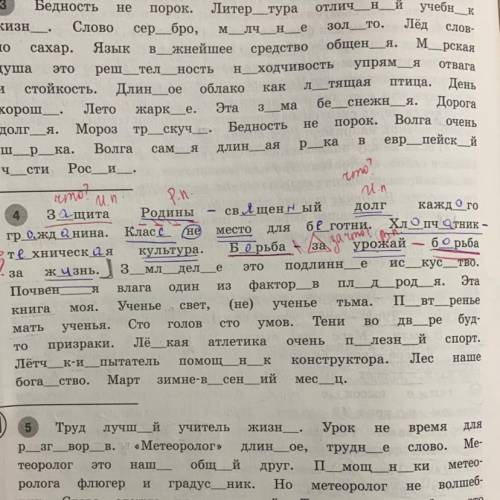 3 Бедность не порок. Литер__тура отлич__н__й учебн__к
жизн__. Слово сер__бро, м__лч__н__е зол__то. Лёд слов-
но сахар. Язык в__жнейшее средство общен__я. М__рская
душа это реш__тел__ность н__ходчивость упрям__я отвага
и стойкость. Длин__ое облако как л__тящая птица. День
хорош__. Лето жарк__е. Эта з__ма бе__снежн__я. Дорога
долг__я. Мороз тр__скуч__. Бедность не порок. Волга очень
ш__р__ка. Волга сам__я длин__ая р__ка в евр__пейск__й
ч__сти Рос__и__.
что? И.п Р.п. что? И.п
4 Защита Родины – священный долг каждого
гражданина. Класс не место для беготни. Хлопчатник –
за что? В.п.
техническая культура. Борьба – за урожай – борьба
за жизнь. З__мл__дел__е это подлинн__е ис__кус__тво.
Почвен____я влага один из фактор__в пл__д__род__я. Эта
книга моя. Ученье свет, (не) ученье тьма. П__вт__ренье
мать ученья. Сто голов сто умов. Тени во дв__ре буд-
то призраки. Лё__кая атлетика очень п__лезн__й спорт.
Лётч__к-и__пытатель помощ__н__к конструктора. Лес наше
бога__ство. Март зимне-в__сен__ий мес__ц.
5 Труд лучш__й учитель жизн__. Урок не время для
р__зг__вор__в. «Метеоролог» длин__ое, трудн__е слово. Ме-
теоролог это наш__ общ__й друг. П__мощ__н__ки метео-
ролога флюгер и градус__ник. Но метеоролог не волшеб-